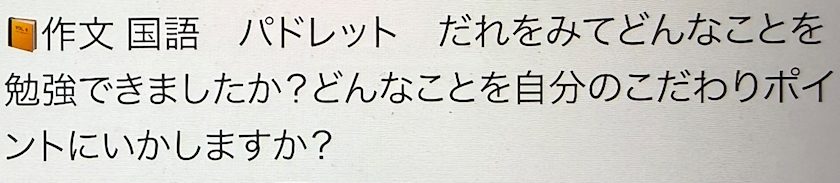 📙作文 国語　パドレット　だれをみてどんなことを
勉強できましたか？どんなことを自分のこだわりポイ
ントにいかしますか？